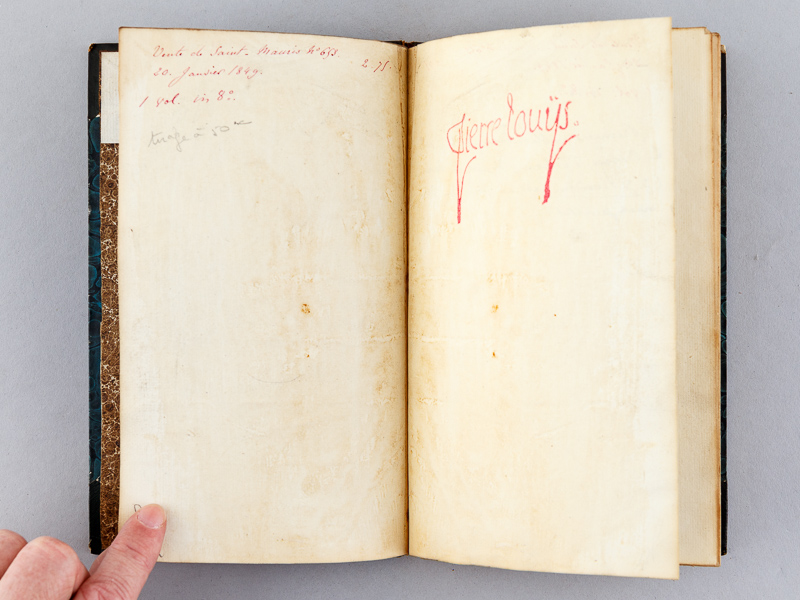 Vente de Saint-Mauris N° 693. 2.75.
20. Janvier 1849.
1 vol. in 8°.
tirage à 50 ex
Pierre Louÿs.